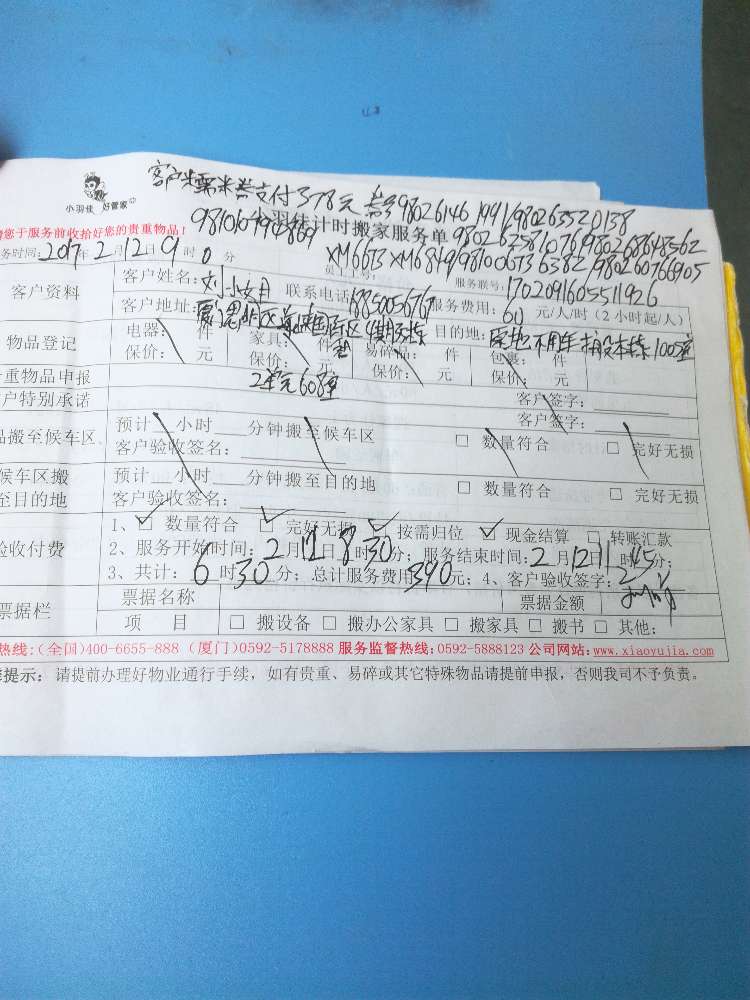 客户糯米券支付378元 券号98026146 1991/980263520138
小羽佳 好管家
小羽佳计时搬家服务单
981010794869 980267581076 980268648562
您于服务前收拾好您的贵重物品！
XM6613 XM6849 981006736382 980260766905
务时间：2017年2月12日9时0分 员工工号： 服务联号：170209165511926
客户资料 客户姓名：刘小姐 联系电话 服务费用：60元/人/时（2小时起/人）
客户地址： 目的地：原地不用车 搬本栋1005室
物品登记 电器： 件 家具： 件 易碎品： 件 包裹： 件
保价： 元 保价： 元 保价： 元 保价： 元
2单元608室
重物品申报 客户签字：
户特别承诺 客户签字：
品搬至候车区 预计 小时 分钟搬至候车区 □ 数量符合 □ 完好无损
客户验收签名：
候车区搬至目的地 预计 小时 分钟搬至目的地 □ 数量符合 □ 完好无损
客户验收签名：
验收付费 1、☑ 数量符合 ☑ 完好无损 ☑ 按需归位 ☑ 现金结算 □ 转账汇款
2、服务开始时间：2月12日8时30分；服务结束时间：2月12日11时45分；
3、共计：6时30分；总计服务费用390元；4、客户验收签字：
票据栏 票据名称 票据金额
项 目 □ 搬设备 □ 搬办公家具 □ 搬家具 □ 搬书 □ 其他：
热线：(全国)400-6655-888 (厦门)0592-5178888 服务监督热线：0592-5888123 公司网站：www.xiaoyujia.com
提示：请提前办理好物业通行手续，如有贵重、易碎或其它特殊物品请提前申报，否则我司不予负责。